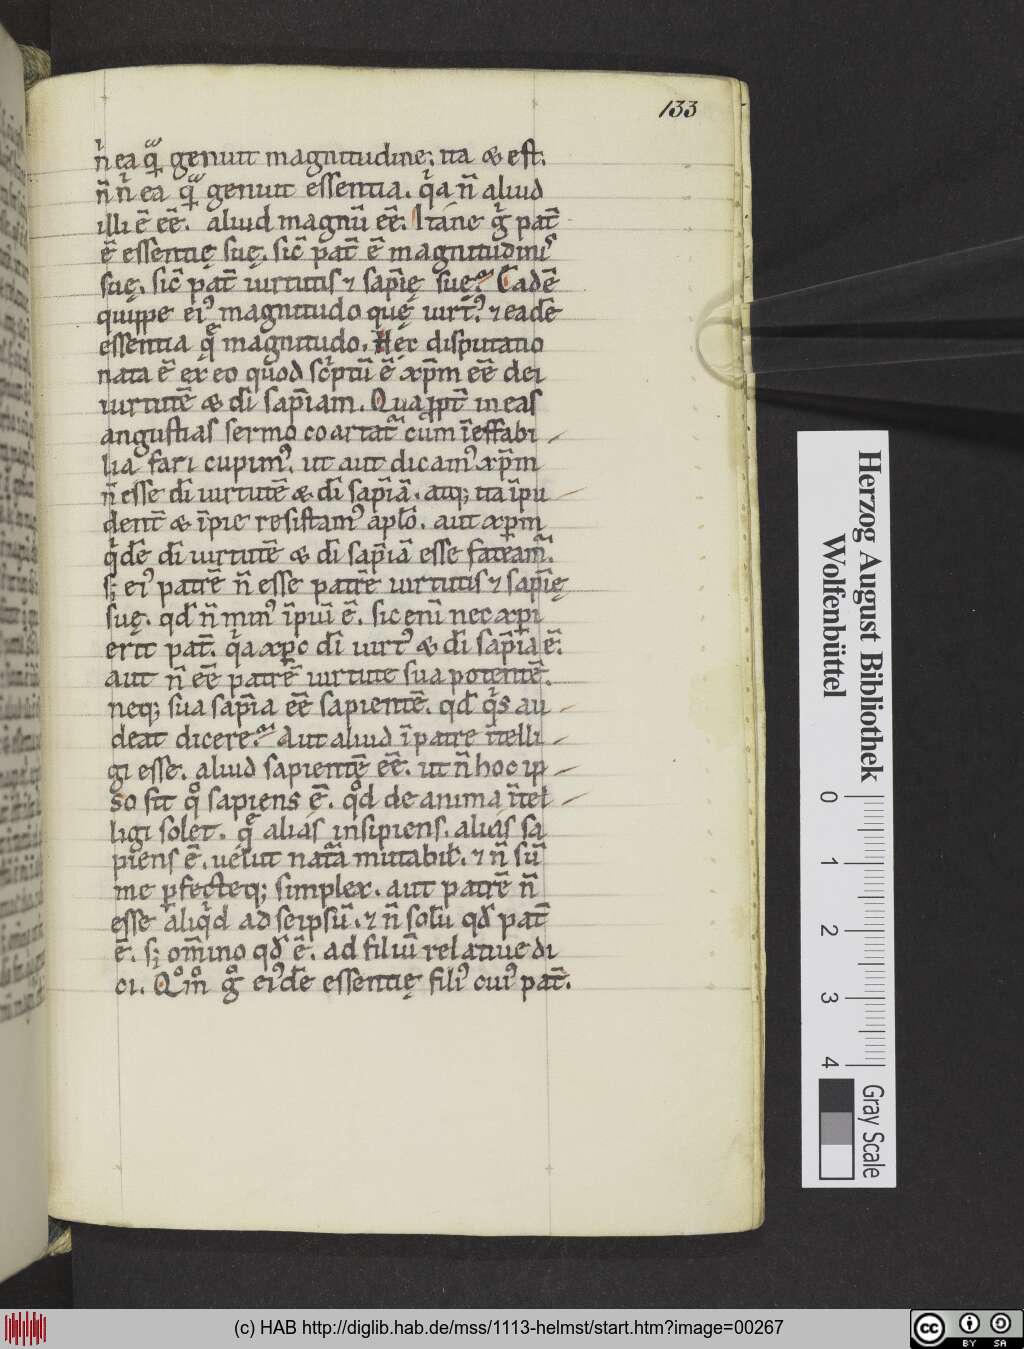 133
n̄ ea q̄ genuit magnitudine; ita & est.
n̄ n̄ ea q̄ genuit essentia. q̇a n̄ aliud
illi ē eē. aliud magnū eē. Itane g̊ pat̄
ē essentię suę. sic̄ pat̄ ē magnitudinis
suę. sic̄ pat̄ uirtutis ⁊ sap̄ię suę? Eadē
quippe ei᷒ magnitudo quę uirt᷒. ⁊ eadē
essentia q̄ magnitudo. Hęc disputatio
nata ē ex eo quod sc̄ptū ē xp̄m eē dei
uirtutē & dī sap̄iam. Quapp̄t in eas
angustias sermo coartat᷑ cum īeffabi
lia fari cupim᷒. ut aut dicam᷒ xp̄m
n̄ esse dī uirtutē & dī sap̄iā. atq; ita īpu
dent̄ & īpie resistam᷒ aplō. aut xp̄m
q̇dē dī uirtutē & dī sap̄iā esse fateam᷑.
s; ei᷒ patrē n̄ esse patrē uirtutis ⁊ sap̄ię
suę. qđ n̄ min᷒ īpiū ē. sic enī nec xp̄i
erit pat̄. q̇a xp̄c dī uirt᷒ & dī sap̄ia ē.
aut n̄ eē patrē uirtute sua potentē.
neq; sua sap̄ia eē sapientē. qđ q̇s au
deat dicere? Aut aliud ī patre ītelli
gi esse. aliud sapientē eē. ut n̄ hoc ip
so sit q̊ sapiens ē. q̊d de anima ītel
ligi solet. q̄ alias insipiens. alias sa
piens ē. uelut nat̄a mutabil̄. ⁊ n̄ sū
me ꝑfecteq; simplex. aut patrē n̄
esse aliq̇d ad seipsū. ⁊ n̄ solū qđ pat̄
ē. s; om̄ino qđ ē. ad filiū relatiue di
ci. Q̊m̊ g̊ ei᷒dē essentię fili᷒ cui᷒ pat̄.
Herzog August Bibliothek
Wolfenbüttel
0 1 2 3 4
Gray Scale
(c) HAB http://diglib.hab.de/mss/1113-helmst/start.htm?image=00267
cc BY SA